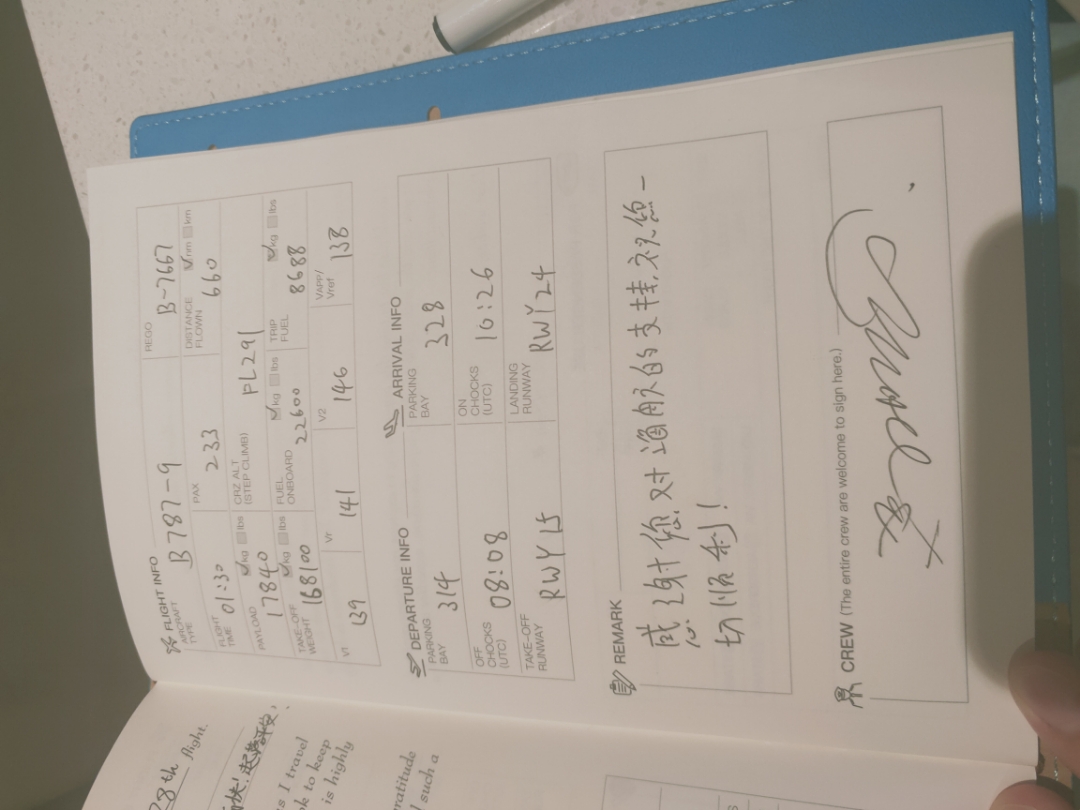 FLIGHT INFO
AIRCRAFT TYPE B787-9 REGO B-7667
FLIGHT TIME 01:30 PAX 233 DISTANCE FLOWN 660 nm km
PAYLOAD 17840 kg lbs CRZ ALT (STEP CLIMB) FL291
TAKE-OFF WEIGHT 168100 kg lbs FUEL ONBOARD 22600 kg lbs TRIP FUEL 8688 kg lbs
V1 139 Vr 141 V2 146 VAPP/Vref 138
DEPARTURE INFO
PARKING BAY 314
OFF CHOCKS (UTC) 08:08
TAKE-OFF RUNWAY RWY15
ARRIVAL INFO
PARKING BAY 328
ON CHOCKS (UTC) 10:26
LANDING RUNWAY RWY24
REMARK
感谢您对海航的支持,祝您一
切顺利!
CREW (The entire crew are welcome to sign here.)
8th flight.
s I travel
ok to keep
is highly
ratitude
such a